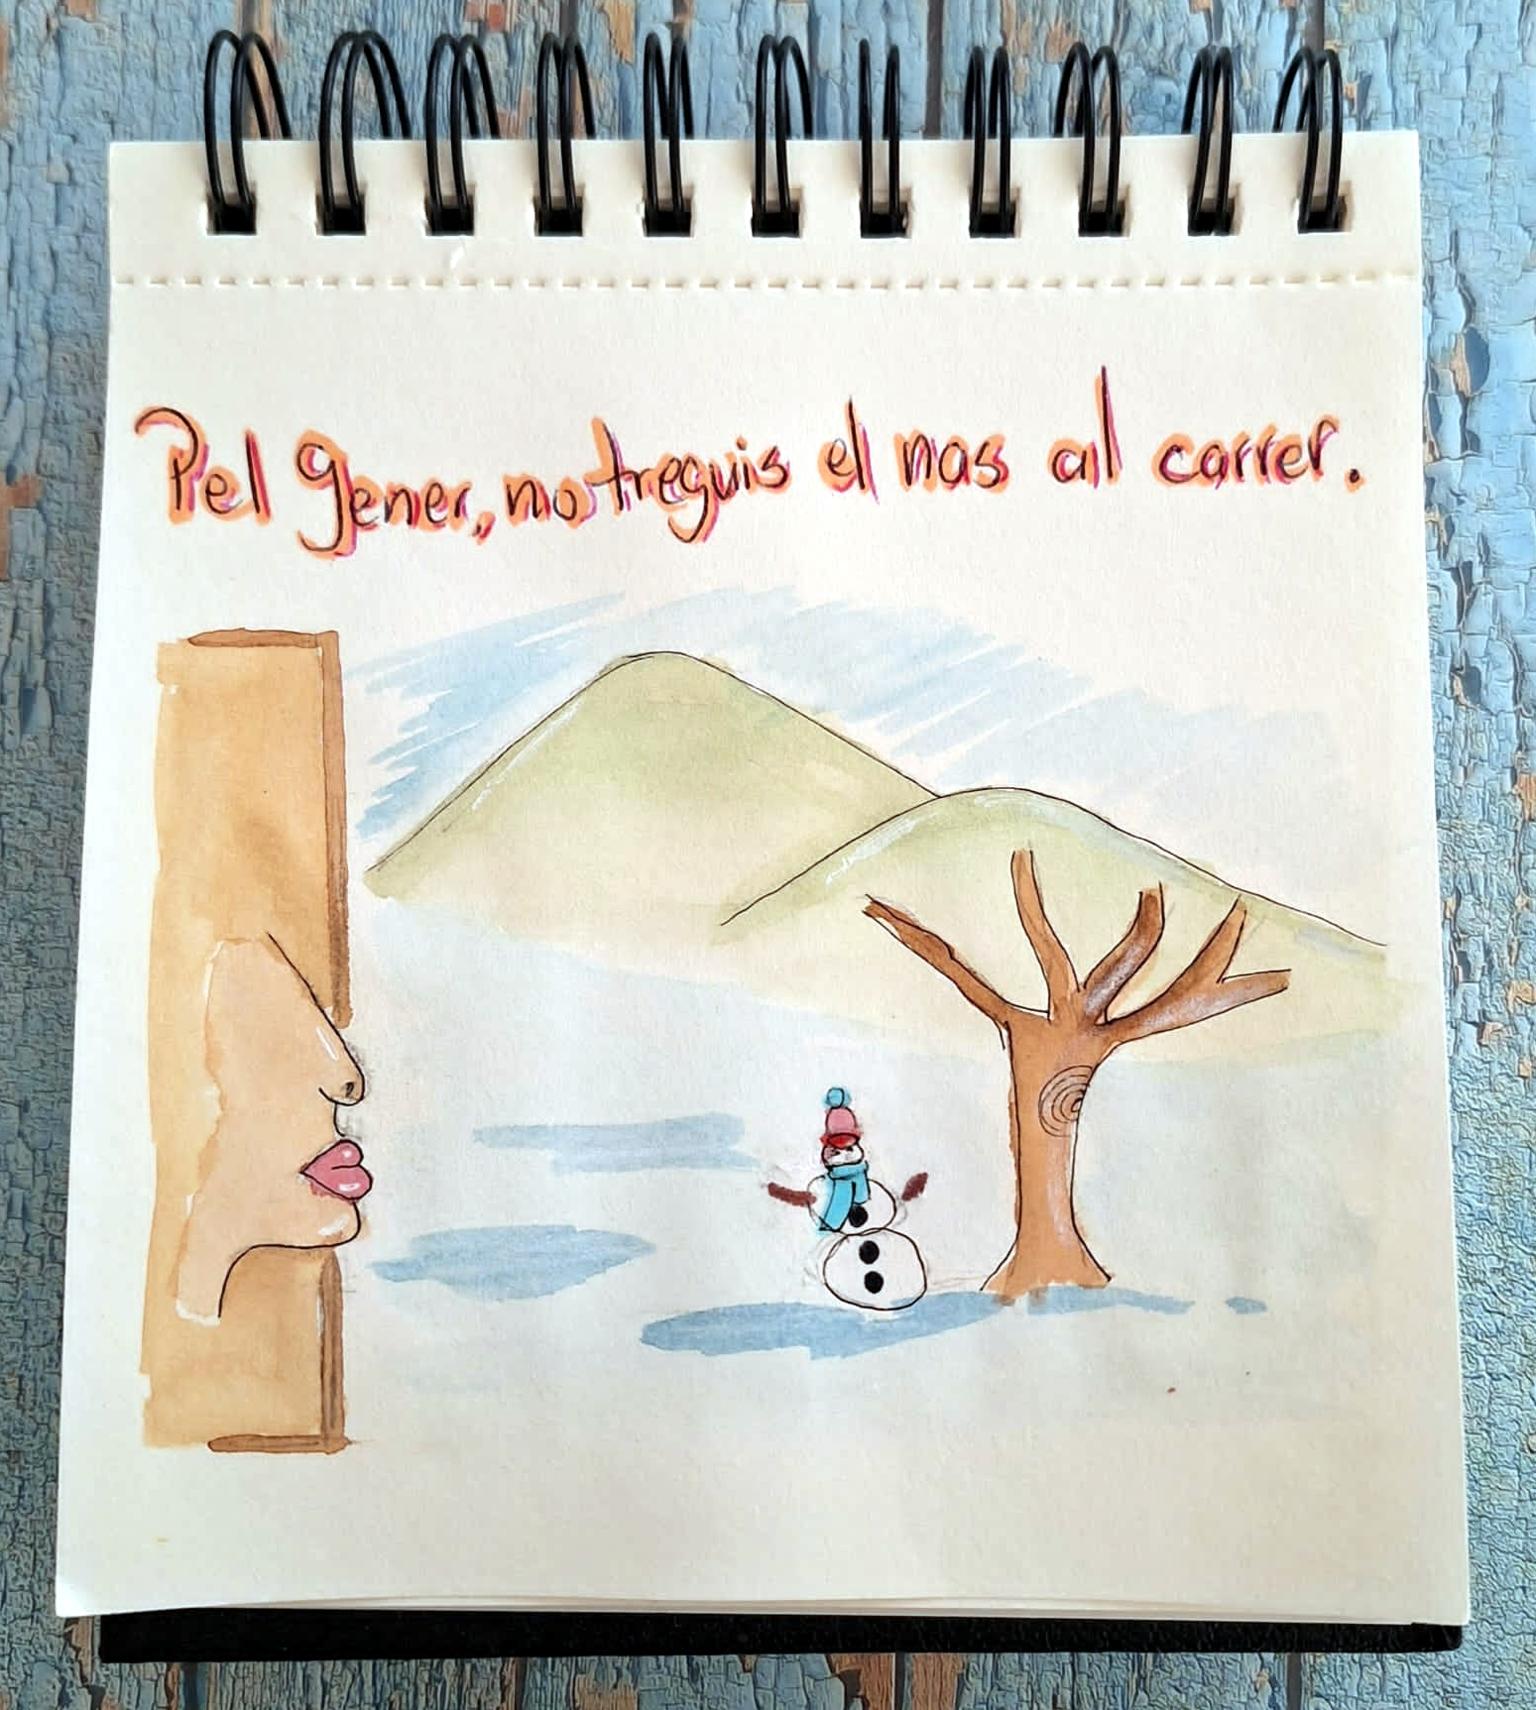 Pel gener, no treguis el nas al carrer.